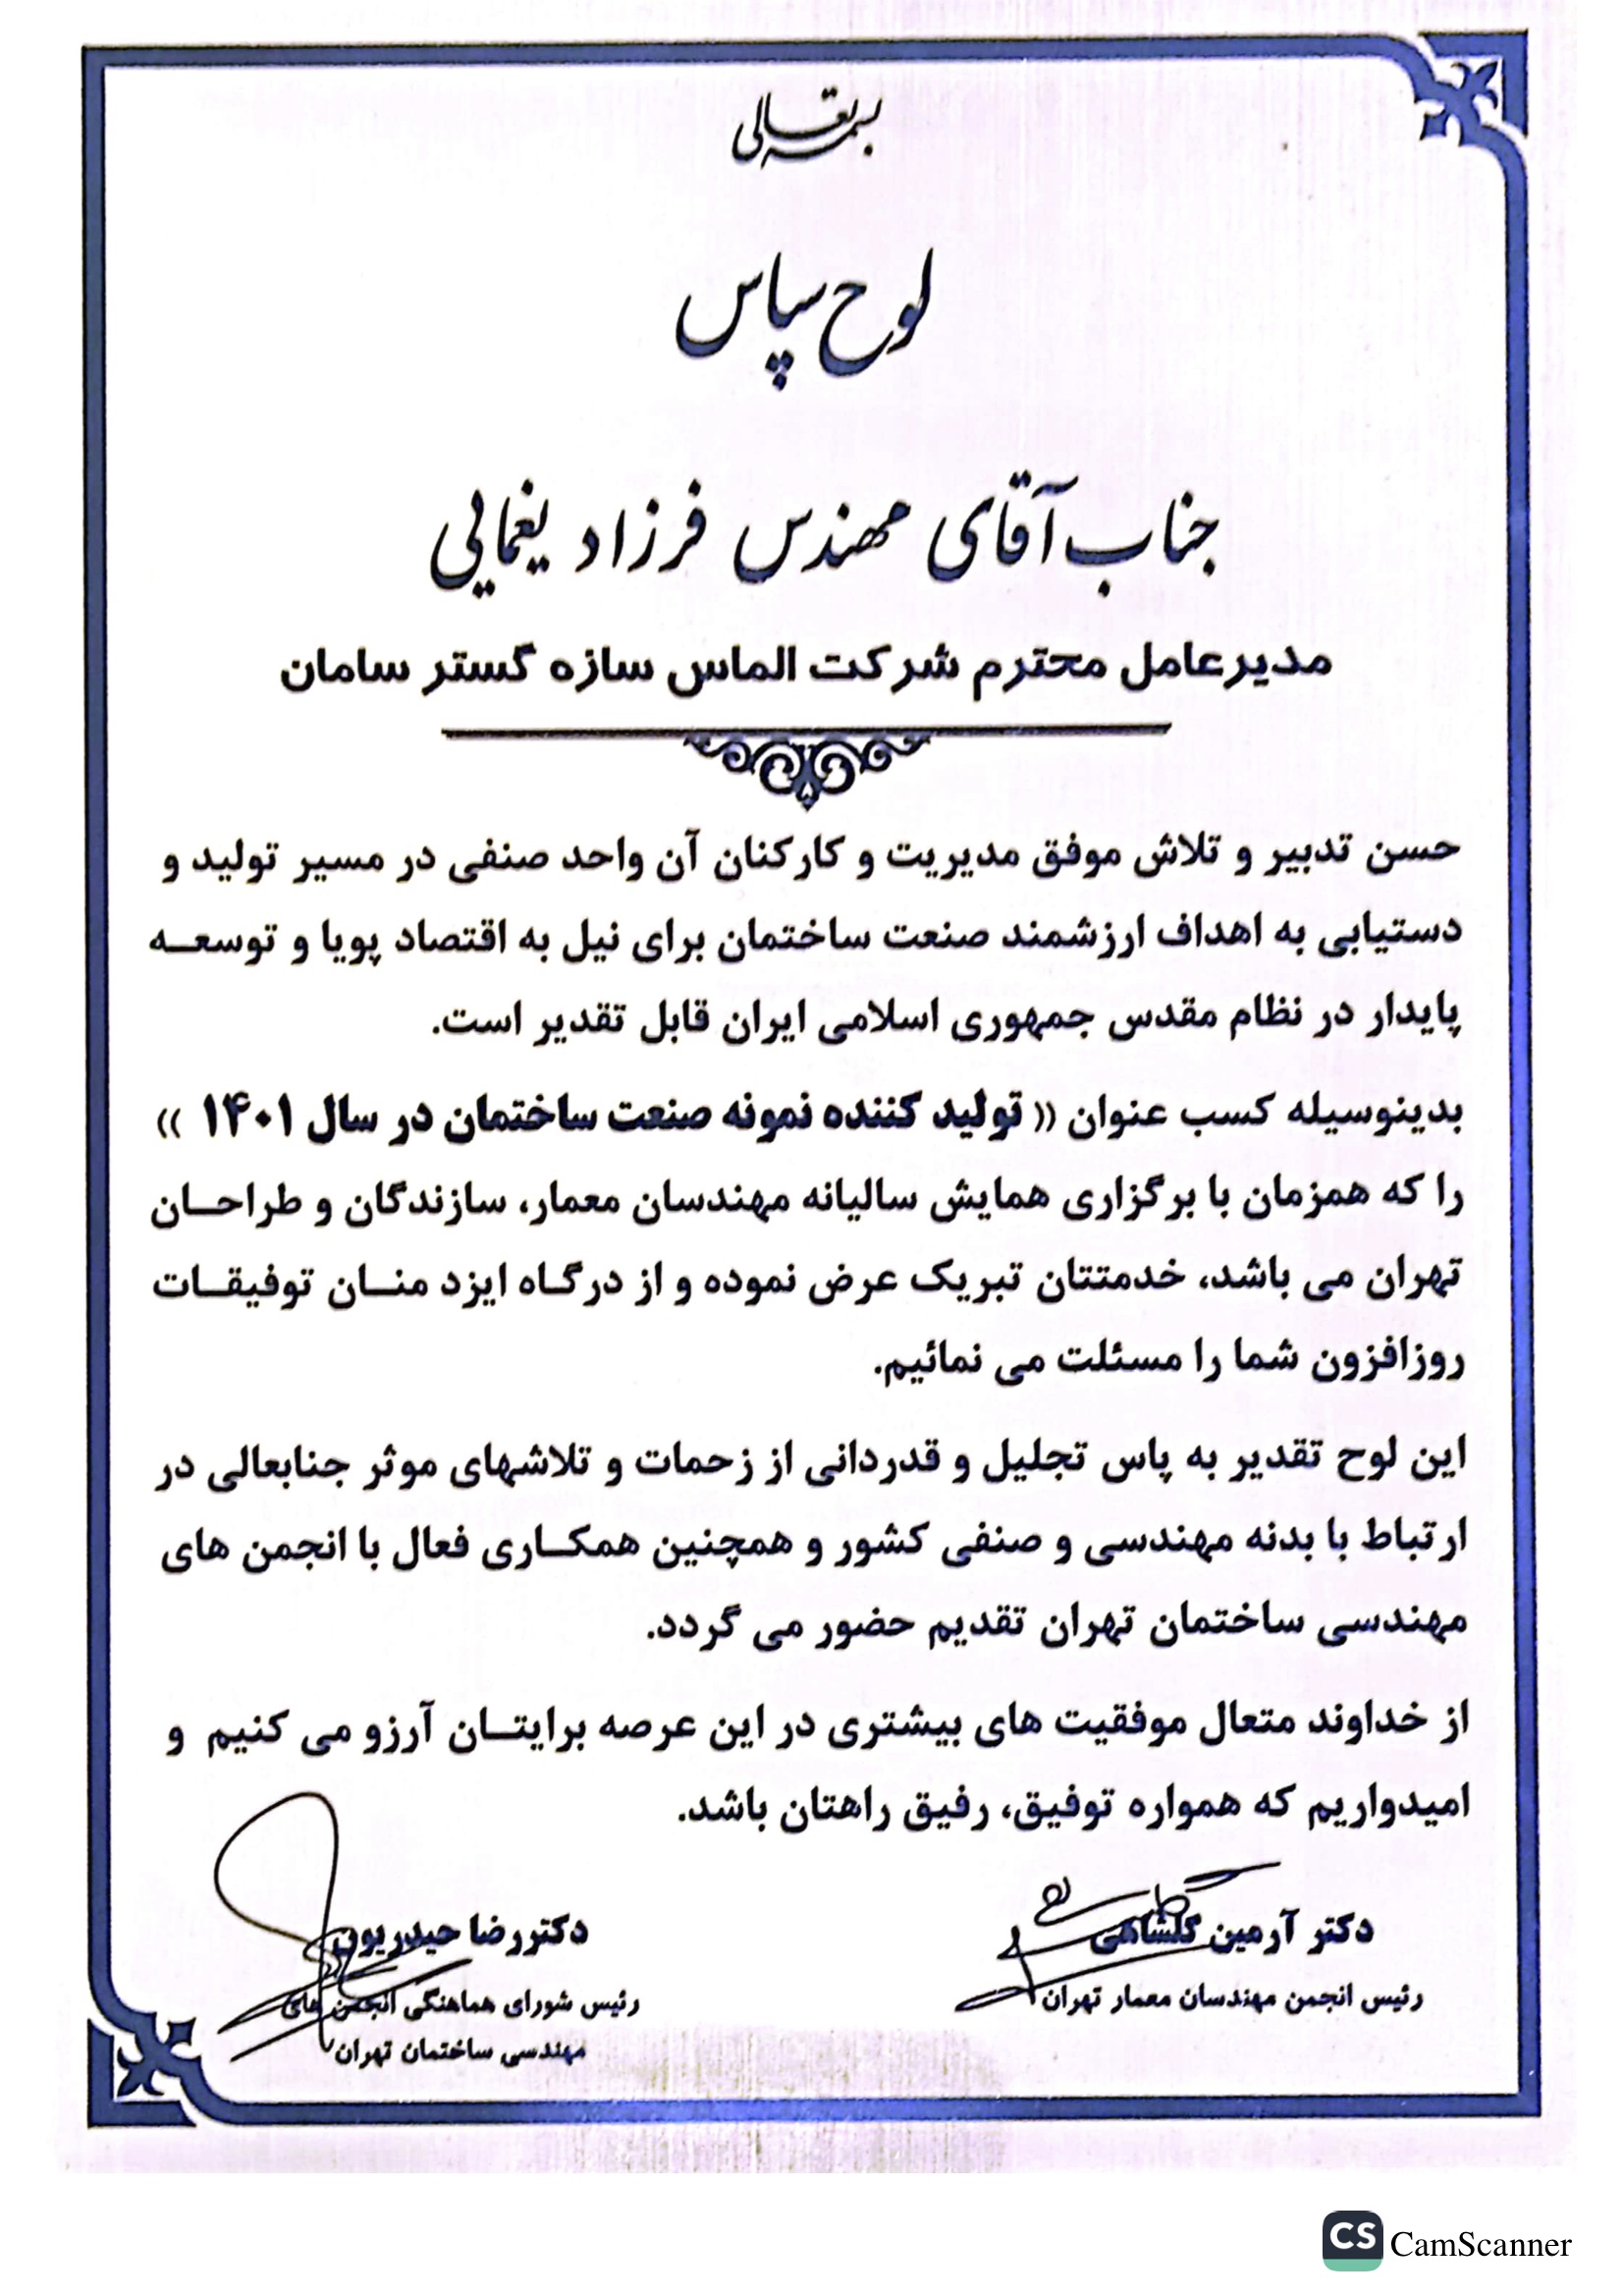 بسمه تعالی
لوح سپاس
جناب آقای مهندس فرزاد یغمایی
مدیرعامل محترم شرکت الماس سازه گستر سامان
حسن تدبیر و تلاش موفق مدیریت و کارکنان آن واحد صنفی در مسیر تولید و
دستیابی به اهداف ارزشمند صنعت ساختمان برای نیل به اقتصاد پویا و توسعــه
پایدار در نظام مقدس جمهوری اسلامی ایران قابل تقدیر است.
بدینوسیله کسب عنوان (( تولید کننده نمونه صنعت ساختمان در سال ۱۴۰۱ ))
را که همزمان با برگزاری همایش سالیانه مهندسان معمار، سازندگان و طراحــان
تهران می باشد، خدمتتان تبریک عرض نموده و از درگـاه ایزد منــان توفیقــات
روزافزون شما را مسئلت می نمائیم.
این لوح تقدیر به پاس تجلیل و قدردانی از زحمات و تلاشهای موثر جنابعالی در
ارتباط با بدنه مهندسی و صنفی کشور و همچنین همکــاری فعال با انجمن های
مهندسی ساختمان تهران تقدیم حضور می گردد.
از خداوند متعال موفقیت های بیشتری در این عرصه برایتــان آرزو می کنیم و
امیدواریم که همواره توفیق، رفیق راهتان باشد.
دکتر آرمین گلشاهی
رئیس انجمن مهندسان معمار تهران
دکتررضا حیدریون
رئیس شورای هماهنگی انجمن های
مهندسی ساختمان تهران
CS CamScanner